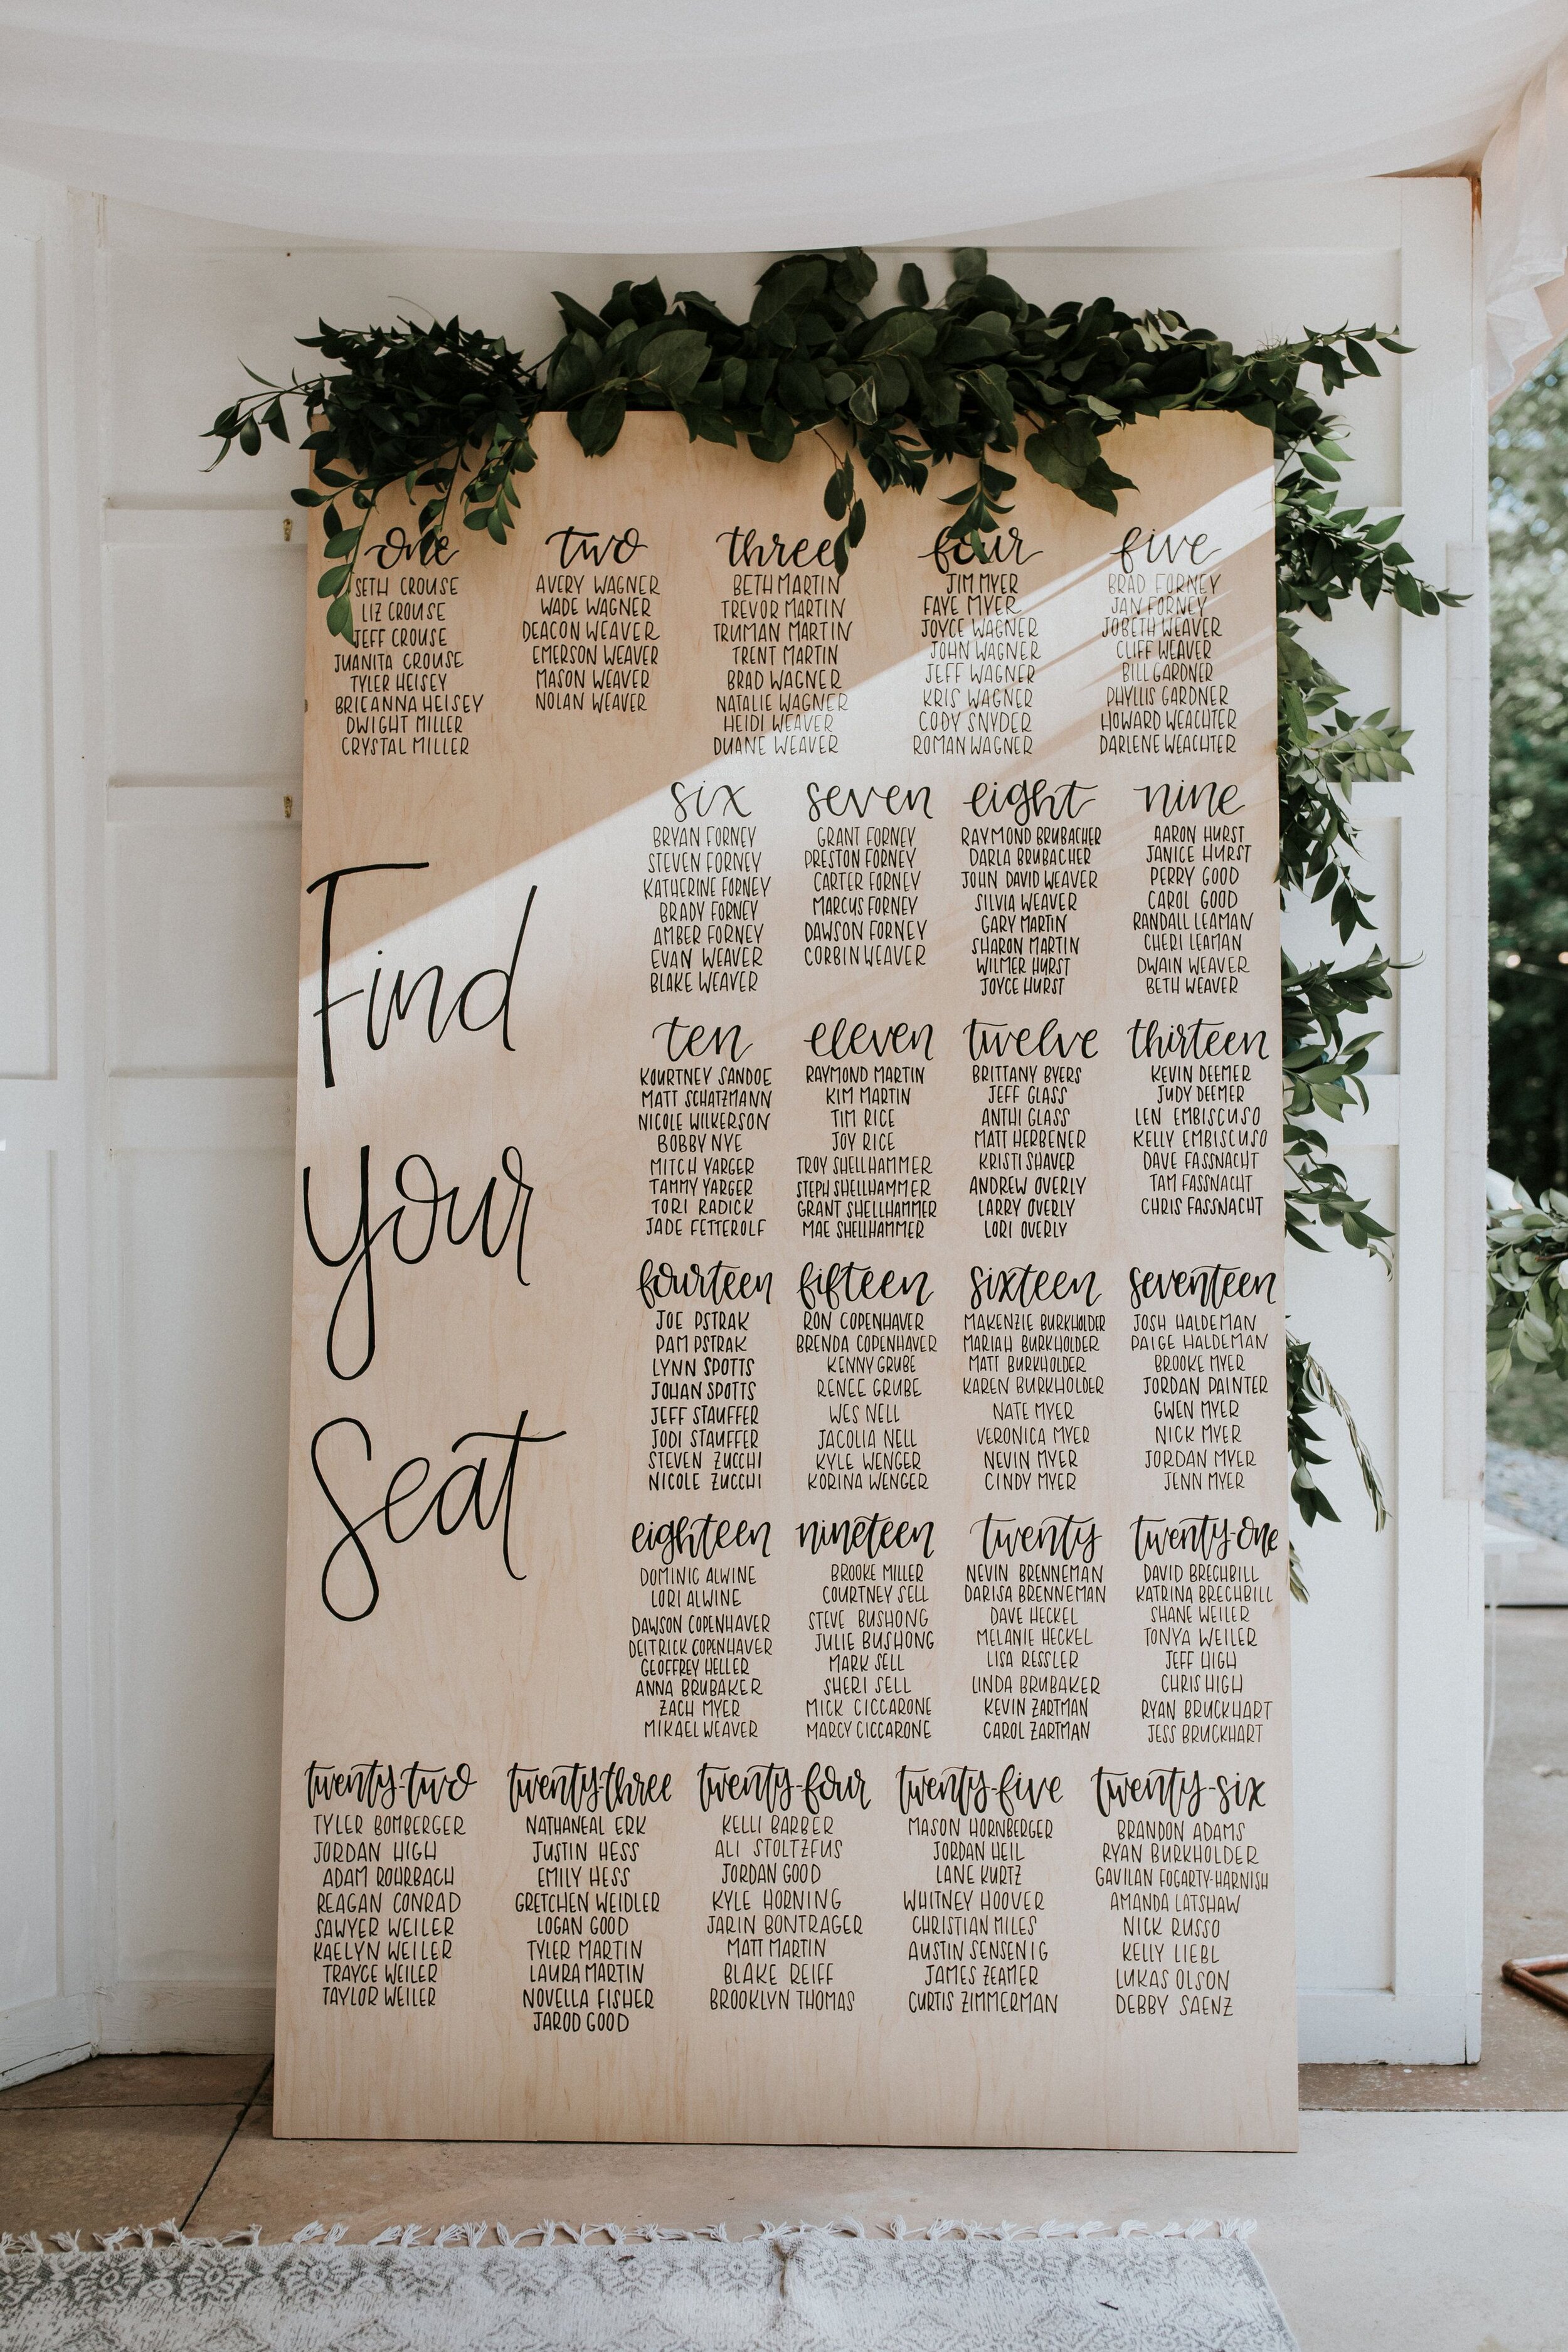 one
SETH CROUSE
LIZ CROUSE
JEFF CROUSE
JUANITA CROUSE
TYLER HEISEY
BRIEANNA HEISEY
DWIGHT MILLER
CRYSTAL MILLER
two
AVERY WAGNER
WADE WAGNER
DEACON WEAVER
EMERSON WEAVER
MASON WEAVER
NOLAN WEAVER
three
BETH MARTIN
TREVOR MARTIN
TRUMAN MARTIN
TRENT MARTIN
BRAD WAGNER
NATALIE WAGNER
HEIDI WEAVER
DUANE WEAVER
four
JIM MYER
FAYE MYER
JOYCE WAGNER
JOHN WAGNER
JEFF WAGNER
KRIS WAGNER
CODY SNYDER
ROMAN WAGNER
five
BRAD FORNEY
JAN FORNEY
JOBETH WEAVER
CLIFF WEAVER
BILL GARDNER
PHYLLIS GARDNER
HOWARD WEACHTER
DARLENE WEACHTER
Find
your
Seat
six
BRYAN FORNEY
STEVEN FORNEY
KATHERINE FORNEY
BRADY FORNEY
AMBER FORNEY
EVAN WEAVER
BLAKE WEAVER
seven
GRANT FORNEY
PRESTON FORNEY
CARTER FORNEY
MARCUS FORNEY
DAWSON FORNEY
CORBIN WEAVER
eight
RAYMOND BRUBACHER
DARLA BRUBACHER
JOHN DAVID WEAVER
SILVIA WEAVER
GARY MARTIN
SHARON MARTIN
WILMER HURST
JOYCE HURST
nine
AARON HURST
JANICE HURST
PERRY GOOD
CAROL GOOD
RANDALL LEAMAN
CHERI LEAMAN
DWAIN WEAVER
BETH WEAVER
ten
KOURTNEY SANDOE
MATT SCHATZMANN
NICOLE WILKERSON
BOBBY NYE
MITCH YARGER
TAMMY YARGER
TORI RADICK
JADE FETTEROLF
eleven
RAYMOND MARTIN
KIM MARTIN
TIM RICE
JOY RICE
TROY SHELLHAMMER
STEPH SHELLHAMMER
GRANT SHELLHAMMER
MAE SHELLHAMMER
twelve
BRITTANY BYERS
JEFF GLASS
ANTHI GLASS
MATT HERBENER
KRISTI SHAVER
ANDREW OVERLY
LARRY OVERLY
LORI OVERLY
thirteen
KEVIN DEEMER
JUDY DEEMER
LEN EMBISCUSO
KELLY EMBISCUSO
DAVE FASSNACHT
TAM FASSNACHT
CHRIS FASSNACHT
fourteen
JOE PSTRAK
PAM PSTRAK
LYNN SPOTTS
JOHAN SPOTTS
JEFF STAUFFER
JODI STAUFFER
STEVEN ZUCCHI
NICOLE ZUCCHI
fifteen
RON COPENHAVER
BRENDA COPENHAVER
KENNY GRUBE
RENEE GRUBE
WES NELL
JACOLIA NELL
KYLE WENGER
KORINA WENGER
sixteen
MAKENZIE BURKHOLDER
MARIAH BURKHOLDER
MATT BURKHOLDER
KAREN BURKHOLDER
NATE MYER
VERONICA MYER
NEVIN MYER
CINDY MYER
seventeen
JOSH HALDEMAN
PAIGE HALDEMAN
BROOKE MYER
JORDAN PAINTER
GWEN MYER
NICK MYER
JORDAN MYER
JENN MYER
eighteen
DOMINIC ALWINE
LORI ALWINE
DAWSON COPENHAVER
DEITRICK COPENHAVER
GEOFFREY HELLER
ANNA BRUBAKER
ZACH MYER
MIKAEL WEAVER
nineteen
BROOKE MILLER
COURTNEY SELL
STEVE BUSHONG
JULIE BUSHONG
MARK SELL
SHERI SELL
MICK CICCARONE
MARCY CICCARONE
twenty
NEVIN BRENNEMAN
DARISA BRENNEMAN
DAVE HECKEL
MELANIE HECKEL
LISA RESSLER
LINDA BRUBAKER
KEVIN ZARTMAN
CAROL ZARTMAN
twenty-one
DAVID BRECHBILL
KATRINA BRECHBILL
SHANE WEILER
TONYA WEILER
JEFF HIGH
CHRIS HIGH
RYAN BRUCKHART
JESS BRUCKHART
twenty-two
TYLER BOMBERGER
JORDAN HIGH
ADAM ROHRBACH
REAGAN CONRAD
SAWYER WEILER
KAELYN WEILER
TRAYCE WEILER
TAYLOR WEILER
twenty-three
NATHANEAL ERK
JUSTIN HESS
EMILY HESS
GRETCHEN WEIDLER
LOGAN GOOD
TYLER MARTIN
LAURA MARTIN
NOVELLA FISHER
JAROD GOOD
twenty-four
KELLI BARBER
ALI STOLTZFUS
JORDAN GOOD
KYLE HORNING
JARIN BONTRAGER
MATT MARTIN
BLAKE REIFF
BROOKLYN THOMAS
twenty-five
MASON HORNBERGER
JORDAN HEIL
LANE KURTZ
WHITNEY HOOVER
CHRISTIAN MILES
AUSTIN SENSENIG
JAMES ZEAMER
CURTIS ZIMMERMAN
twenty-six
BRANDON ADAMS
RYAN BURKHOLDER
GAVILAN FOGARTY-HARNISH
AMANDA LATSHAW
NICK RUSSO
KELLY LIEBL
LUKAS OLSON
DEBBY SAENZ